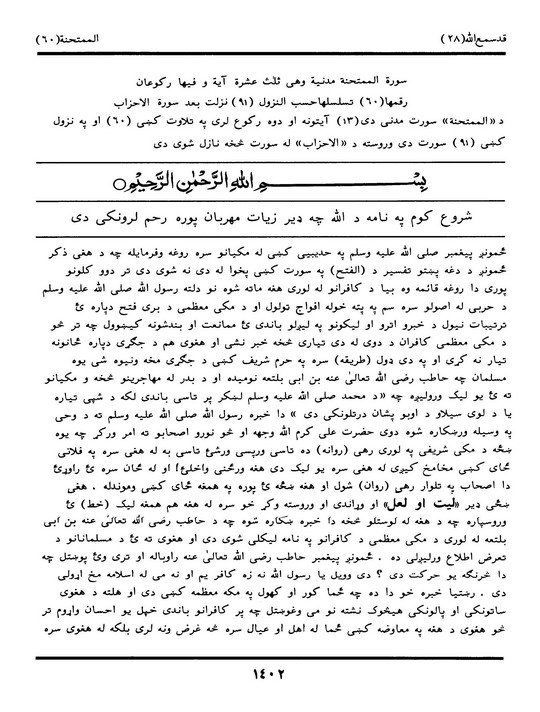 قدسمع الله(۲۸) الممتحنة(۶۰)
سورة الممتحنة مدنية وهى ثلث عشرة آية و فيها ركوعان
رقمها(۶۰) تسلسلهاحسب النزول (۹۱) نزلت بعد سورة الاحزاب
د «الممتحنة» سورت مدنی دی(۱۳) آیتونه او دوه رکوع لری په تلاوت کښی (۶۰) او په نزول
کښی (۹۱) سورت دی وروسته د «الاحزاب» له سورت څخه نازل شوی دی
بِسْمِ اللهِ الرَّحْمٰنِ الرَّحِيْمِ○
شروع کوم په نامه د الله چه ډیر زیات مهربان پوره رحم لرونکی دی
ځمونږ پیغمبر صلی الله علیه وسلم په حدیبیی کښی له مکیانو سره روغه وفرمایله چه د هغی ذکر
ځمونږ د دغه پښتو تفسیر د (الفتح) په سورت کښی پخوا له دی نه شوی دی تر دوو کلونو
پوری دا روغه قائمه وه بیا د کافرانو له لوری هغه ماته شوه نو دلته رسول الله صلی الله علیه وسلم
د حربی له اصولو سره سم په پته خوله افواج تولول او د مکی معظمی د بری فتح دپاره ئ
ترتیبات نیول د خبرو اترو او لیکونو په لیږلو باندی ئ ممانعت او بندشونه کیښوول چه تر څو
د مکی معظمی کافران د دوی له دی تیاری څخه خبر نشی او هغوی هم د جګړی دپاره ځانونه
تیار نه کړی او په دی ډول (طریقه) سره په حرم شریف کښی د جګړی مخه ونیوه شی یوه
مسلمان چه حاطب رضی الله تعالیٰ عنه بن ابی بلتعه نومیده او د بدر له مهاجرینو څخه و مکیانو
ته ئ یو لیک ورولیږه چه «د محمد صلی الله علیه وسلم لښکر پر تاسی باندی لکه د شپی تیاره
یا د لوی سیلاو د اوبو پشان درتلونکی دی » دا خبره رسول الله صلی الله علیه وسلم ته د وحی
په وسیله ورښکاره شوه دوی حضرت علی کرم الله وجهه او څو نورو اصحابو ته امر ورکړ چه یوه
ښځه د مکی شریفی په لوری رهی (روانه) ده تاسی ورپسی ورشئ تاسی به له هغی سره په فلانی
ځای کښی مخامخ کیږی له هغی سره یو لیک دی هغه ورځنی واخلئ! او له ځان سره ئ راوړئ
دا اصحاب په تلوار رهی (روان) شول او هغه ښځه ئ پوره په همغه ځای کښی وموندله . هغی
ښځی ډیر «لیت او لعل» او وړاندی او وروسته وکړ خو سره له هغه هم همغه لیک (خط) ئ
وروسپاره چه د هغه له لوستلو څخه دا خبره ښکاره شوه چه د حاطب رضی الله تعالیٰ عنه بن ابی
بلتعه له لوری د مکی معظمی د کافرانو په نامه لیکلی شوی دی او هغوی ته ئ د مسلمانانو د
تعرض اطلاع ورلیږلی ده . ځمونږ پیغمبر حاطب رضی الله تعالیٰ عنه راوباله او تری وئ پوښتل چه
دا څرنګه یو حرکت دی ؟ دی وویل یا رسول الله نه زه کافر یم او نه می له اسلامه مخ اړولی
دی . رښتیا خبره خو دا ده چه ځما کور او کهول په مکه معظمه کښی دی او هلته د هغوی
ساتونکی او پالونکی هیڅوک نشته نو می وغوښتل چه پر کافرانو باندی خپل یو احسان واړوم تر
څو هغوی د هغه په معاوضه کښی ځما له اهل او عیال سره څه غرض ونه لری بلکه له هغوی سره
۱۴۰۲